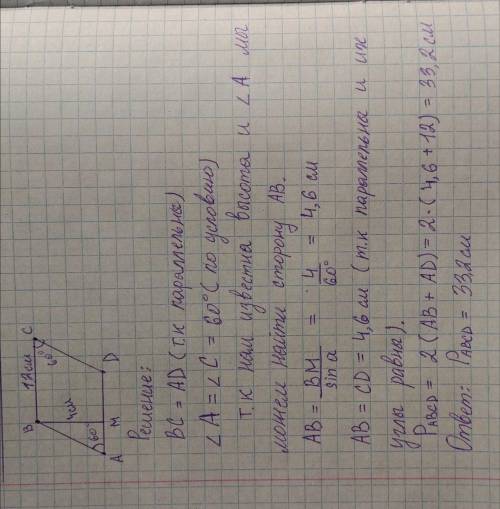 B 12см C
60°
4см
60°
A M D
Решение:
BC = AD (т.к параллельны)
∠A = ∠C = 60° (по условию)
т.к нам известна высота и ∠A мы
можем найти сторону AB.
AB = BM / sin a = 4 / 60° = 4,6 см
AB = CD = 4,6 см (т.к параллельна и их
углы равна).
P_ABCD = 2(AB + AD) = 2·(4,6 + 12) = 33,2 см
Ответ: P_ABCD = 33,2 см